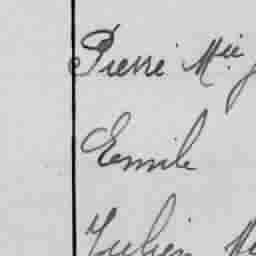 Pierre Mie
Emile
Julien